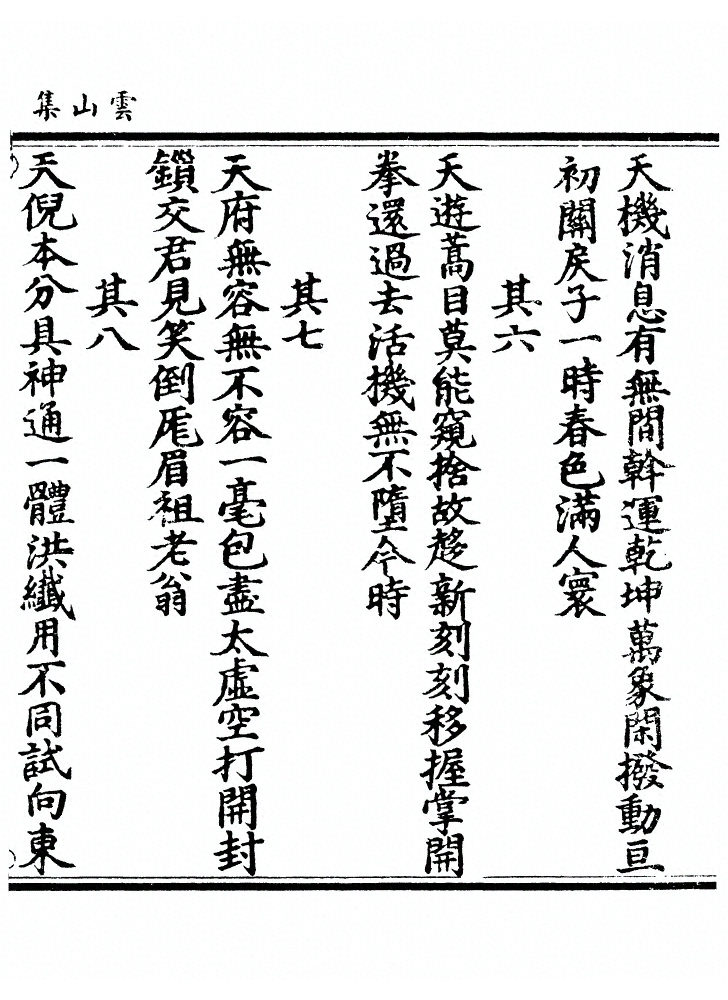 雲山集
天機消息有無間斡運乾坤萬象閑撥動亘
初關戾子一時春色滿人寰
其六
天遊蒿目莫能窺捨故趍新刻刻移握掌開
拳還過去活機無不墮今時
其七
天府無容無不容一毫包盡太虛空打開封
鎻交君見笑倒厖眉祖老翁
其八
天倪本分具神通一體洪纖用不同試向東